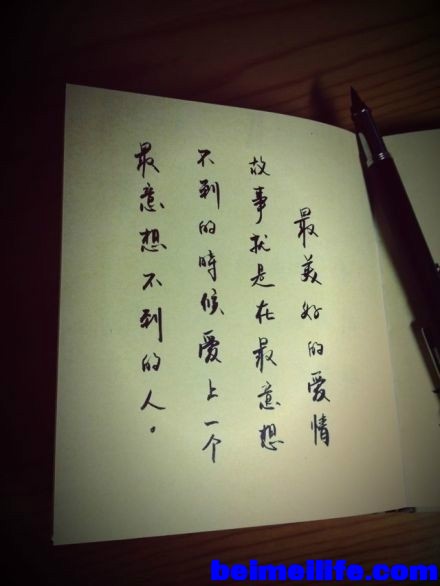 最美好的爱情
故事就是在最意想
不到的時候愛上一个
最意想不到的人。
beimeilife.com